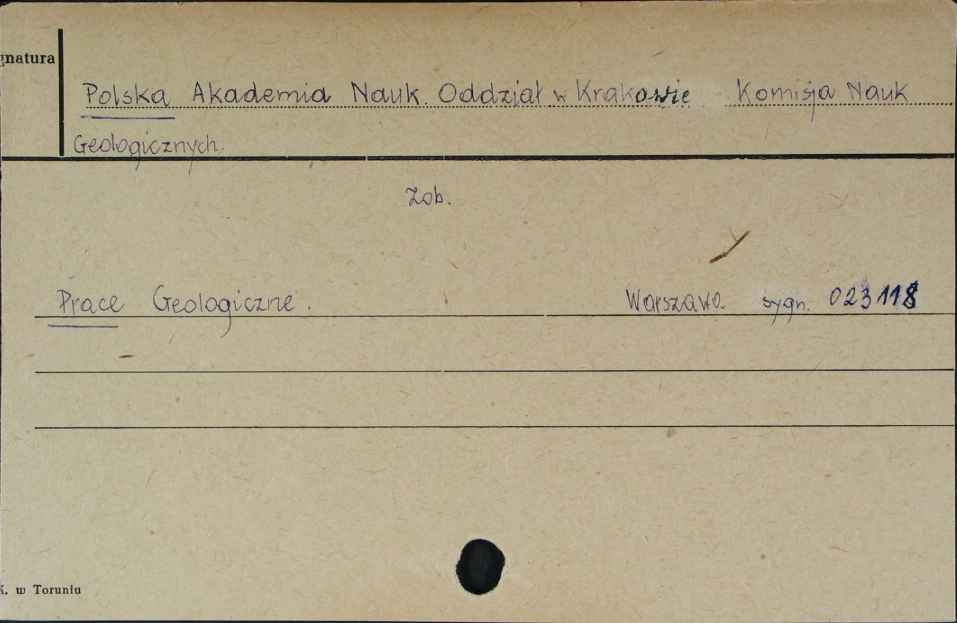 gnatura
Polska Akademia Nauk. Oddział w Krakowie Komisja Nauk
Geologicznych.
Zob.
Prace Geologiczne. Warszawa. sygn. 023118
K. w Toruniu